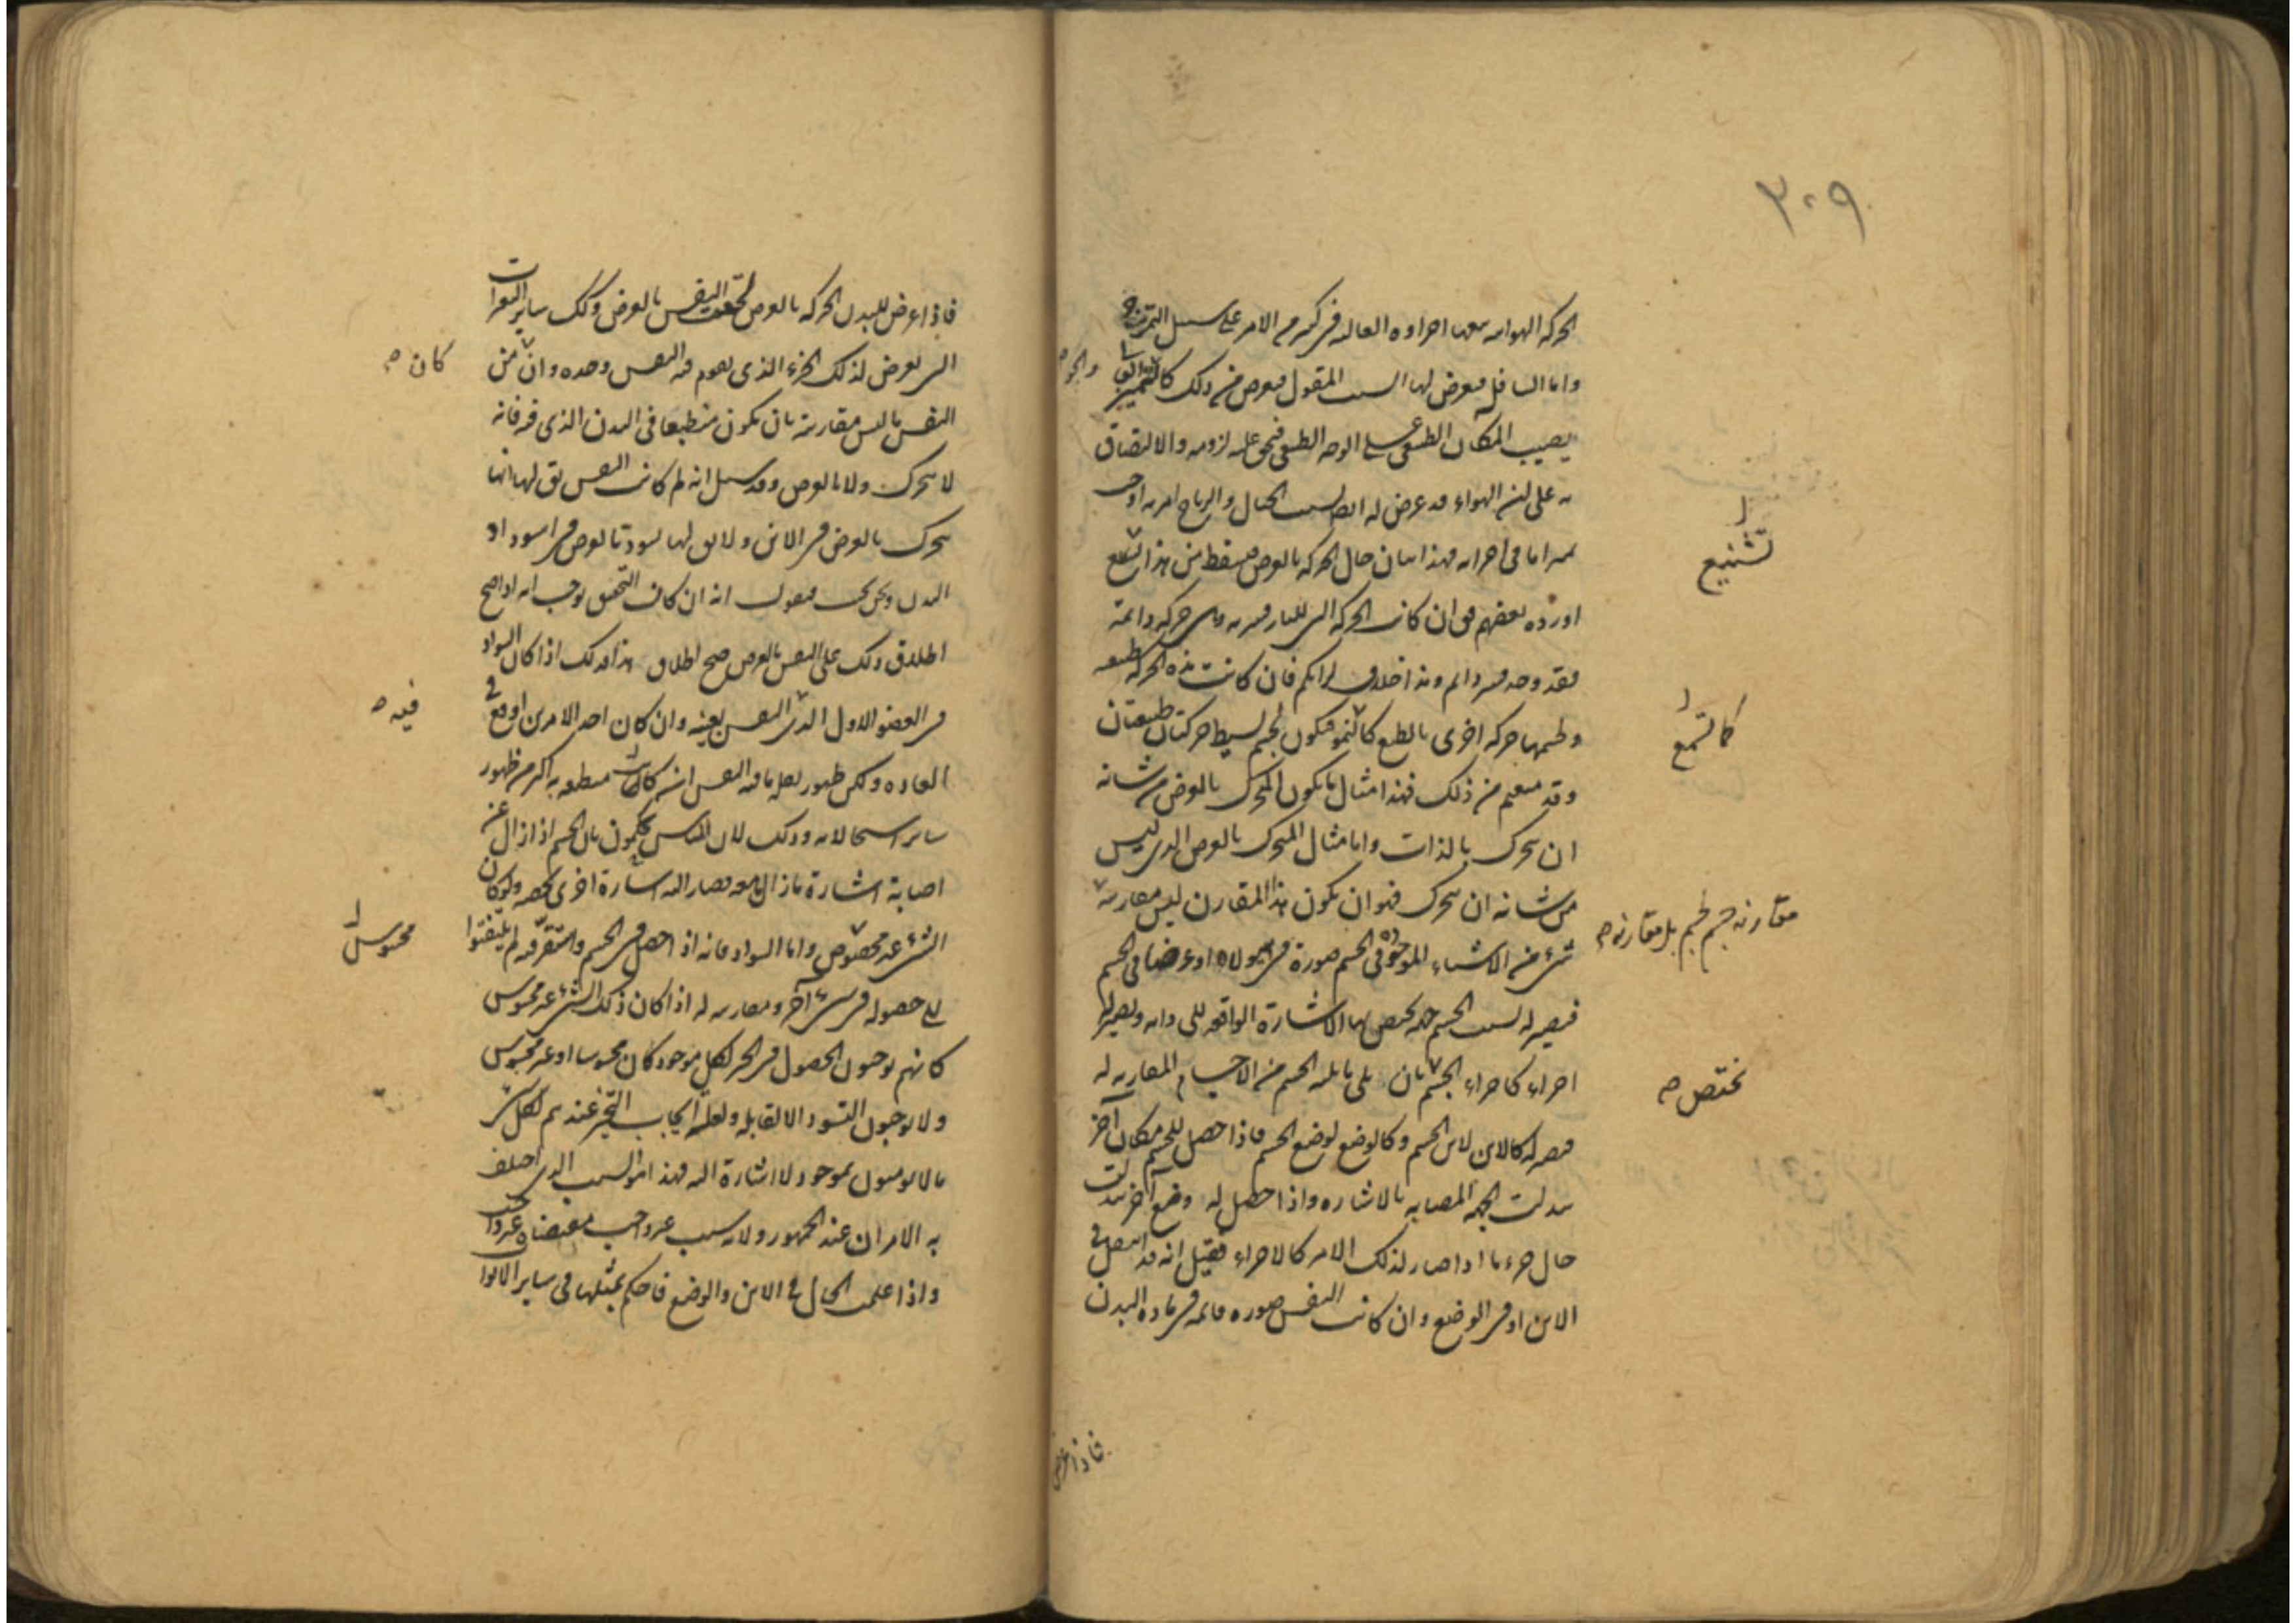 ٣٠٩
الحركة الهوائية معها اجزاؤه العالية في كثير من الامر على سبيل التمزق
واما السافل فيعرض لها السبب المقول فيعرض من ذلك
يصيب المكان الطبيعي على الوجه الطبيعي فيحق عليه لزومه والالتصاق
به على ان الهواء قد عرض له ايضا بسبب الجبال والرياح امر به اوجب
تميزا ما في اجزائه فهذا بيان حال الحركة بالعرض فيسقط من هذا تشنع
اورده بعضهم في ان كانت الحركة التي للنار قسرية وهي حركة دائمة
فقد وجد قسر دائم وهذا خلاف لرايكم فان كانت هذه الحركة طبيعية
ولجسمها حركة اخرى بالطبع كالنمو فيكون لجسم بسيط حركتان طبيعيتان
وقد منعتم من ذلك فهذا مثال ما يكون المتحرك بالعرض من شانه
ان يتحرك بالذات واما مثال المتحرك بالعرض الذي ليس
من شانه ان يتحرك فهو ان يكون هذا المقارن ليس مقارنته
شىء من الاشياء الموجودة في الجسم صورة في هيولاه او عرضا في الجسم
فيصير له بسبب الجسم جهة يختص بها الاشارة الواقعة الى ذاته ويصير لها
اجزاء كاجزاء الجسم بان يلي ما يليه الجسم من الاجسام المقاربة له
فيصير له كالاين لاين الجسم وكالوضع لوضع الجسم فاذا حصل للجسم مكان آخر
تبدلت الجهة المصابة بالاشارة واذا حصل له وضع آخر تبدلت
حال جزء ما اذا صار لذلك الامر كالاجزاء فقيل انه قد انتقل في
الاين او في الوضع وان كانت النفس صورة قائمة في مادة البدن
تشنيع
كالتمع
مقارنه جسم لجسم بل مقارنه ص
تختص ص
فاذا عرض
فاذا عرض للبدن الحركة بالعرض لحقت النفس بالعرض وكذلك ساير التغيرات
التي يعرض لذلك الجزء الذي يقوم فيه النفس وحده وان من
النفس ما ليس مقارنته بان يكون منطبعا في البدن الذي فيه فانه
لا يتحرك ولا بالعرض وقد سئل انه لم كانت النفس يق لها انها
يتحرك بالعرض في الاين ولا يق لها تسودت بالعرض في اسوداد
البدن ونحن نجيب فنقول انه ان كان التحقيق يوجب انه اذا صح
اطلاق ذلك على النفس بالعرض صح اطلاق هذا وذلك اذا كان السواد
في العضو الاول الذي النفس بعينه وان كان احد الامرين اوقع في
العادة ولكن ظهور نقله ما فيه النفس ان كانت منطبعة به اكثر من ظهور
ساير استحالاته وذلك لان الناس يحكمون بان الجسم اذا زال عن
اصابة اشارة ما زال ما معه فصار اليه اشارة اخرى يخصه ولو كان
الشىء غير مخصوص واما السواد فانه اذا حصل في الجسم واستقر فيه لم يلتفتوا
الى حصوله في شىء آخر ومقارنته له اذا كان ذلك الشىء غير محسوس
كانهم يوجبون الحصول في الحيز لكل موجود كان محسوسا او غير محسوس
ولا يوجبون التسود الا لقابله ولعلة ايجاب التحيز عندهم لكل شىء
ما لا يومنون بموجود لا اشارة اليه فهذا هو السبب الذي اختلف
به الامران عند الجمهور ولانه سبب غير واجب فمقتضاه غير واجب
واذا علمت الحال في الاين والوضع فاحكم بمثلها في ساير الابواب
كان ص
فيه ص
محسوس